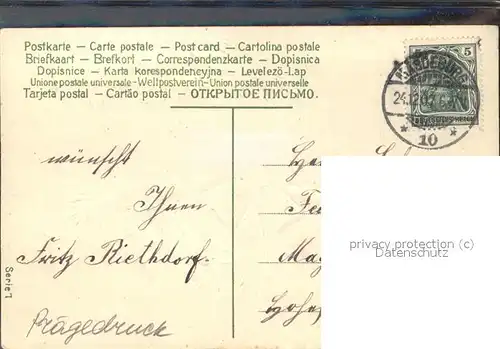 Postkarte – Carte postale – Post card – Cartolina postale
Briefkaart – Brefkort – Correspondenzkarte – Dopisnica
Dopisnice – Karta korespondencyjna – Levelező-Lap
Unione postale universale - Weltpostverein - Union postale universelle
Tarjeta postal – Cartão postal – ОТКРЫТОЕ ПИСЬМО.
5
MAGDEBURG
24.12.07
* 10 *
wünscht
Ihnen
Fritz Riethdorf.
Mag
privacy protection (c)
Datenschutz
Serie 1
Prägedruck